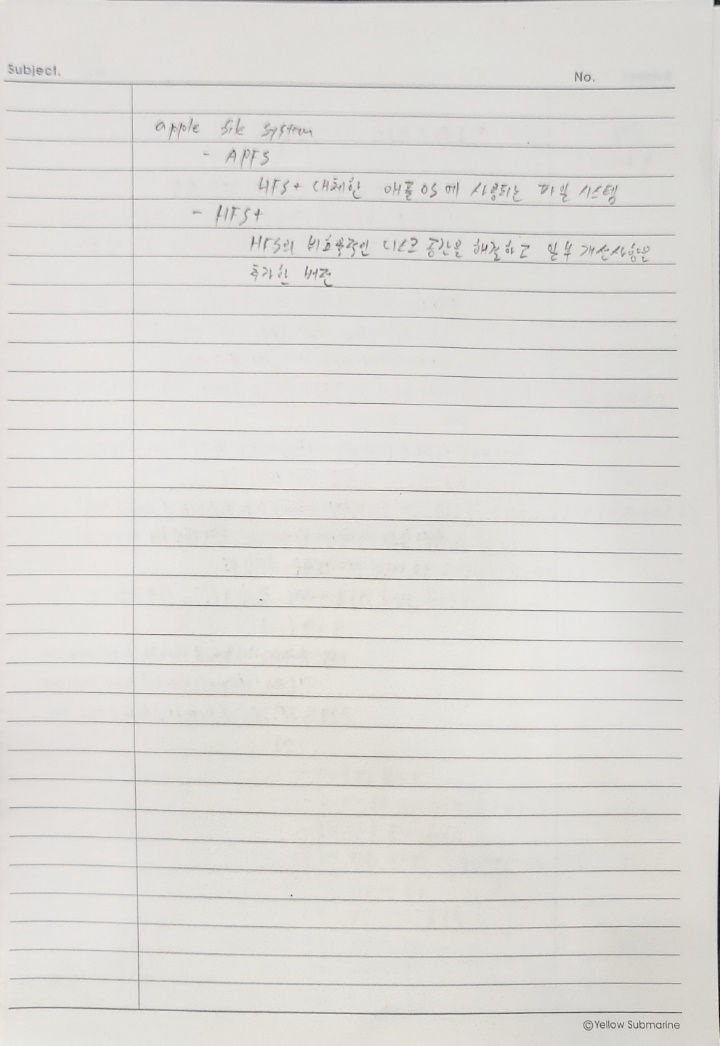 Subject.
No.
apple file system
- APFS
HFS+ 대체한 애플 OS에 사용되는 파일 시스템
- HFS+
HFS의 비효율적인 디스크 공간을 해결하고 일부 개선사항은
추가한 버전
©Yellow Submarine